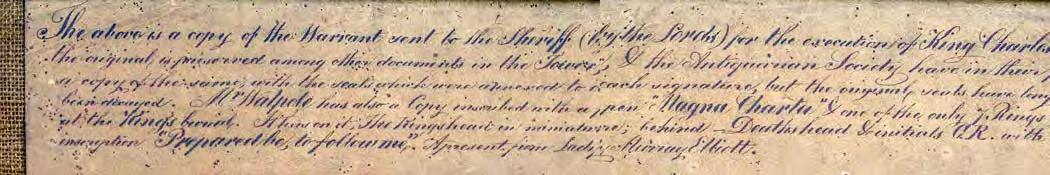 The above is a copy of the Warrant sent to the Sheriff (by the Lords) for the execution of King Charles
the original, is preserved among other documents in the Tower; & the Antiquarian Society have in their
a copy of the same, with the seals which were annexed to each signature, but the original seals have long
been decayed. Mr Walpole has also a Copy inscribed with a pen "Magna Charta" & one of the only 7 Rings
at the King's burial. It has on it, the Kings head in miniature; behind a Deaths head & initials C.R. with
inscription "Prepared be, to follow me". A present, from Lady Murray Elliott.